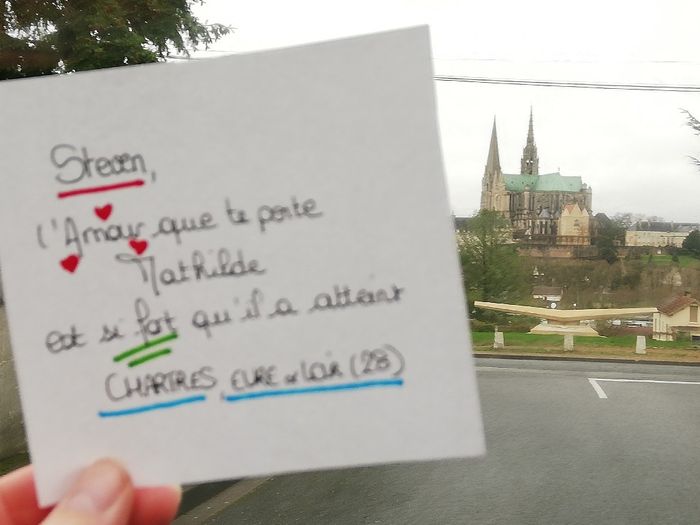 Steven,
l'Amour que te porte
Mathilde
est si fort qu'il a atteint
CHARTRES, EURE et Loir (28)